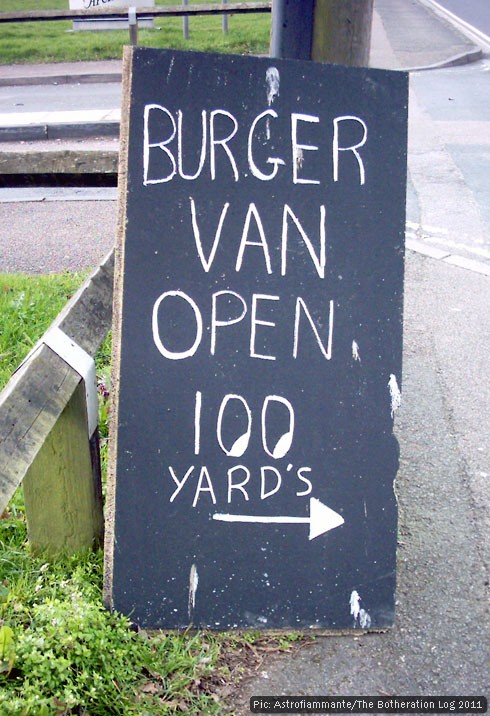 BURGER
VAN
OPEN
100
YARD'S
Pic: Astrofiammante/The Botheration Log 2011